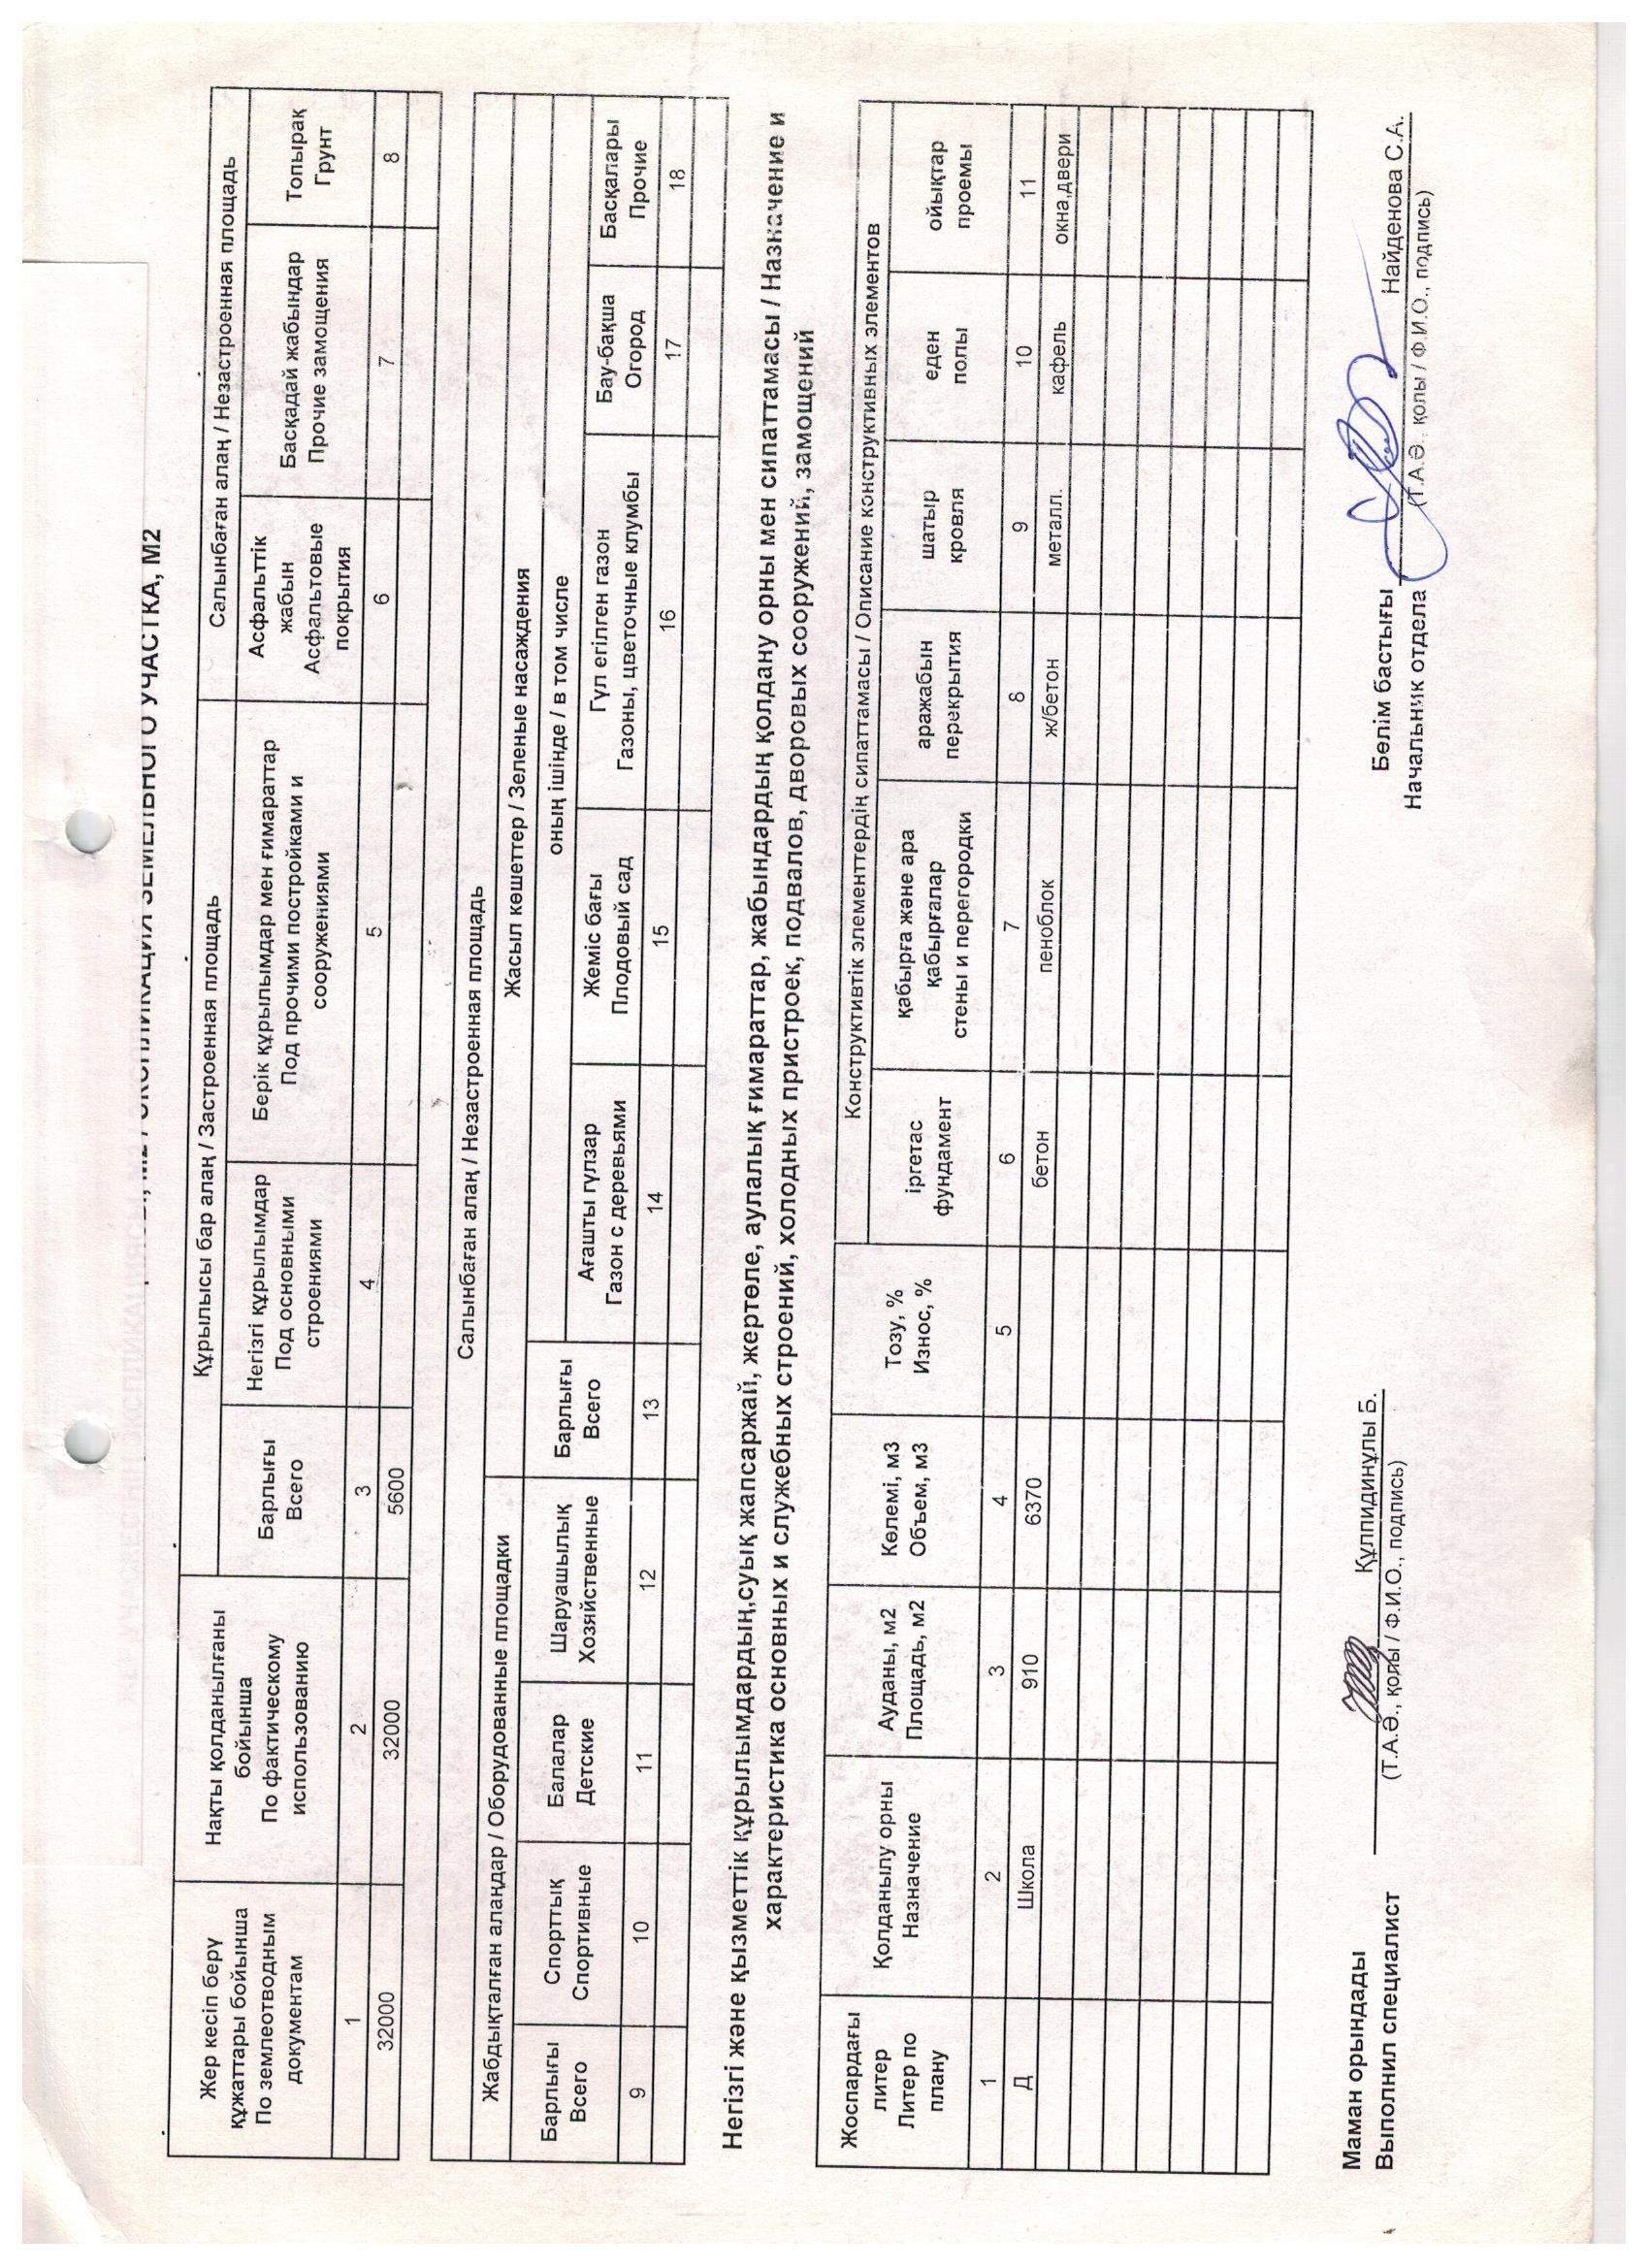 ЭКСПЛИКАЦИЯ ЗЕМЕЛЬНОГО УЧАСТКА, М2
Жер кесіп беру құжаттары бойынша
По землеотводным документам
Нақты қолданылғаны бойынша
По фактическому использованию
Құрылысы бар алаң / Застроенная площадь
Салынбаған алаң / Незастроенная площадь
Барлығы
Всего
Негізгі құрылымдар
Под основными строениями
Берік құрылымдар мен ғимараттар
Под прочими постройками и сооружениями
Асфальттік жабын
Асфальтовые покрытия
Басқадай жабындар
Прочие замощения
Топырақ
Грунт
1 2 3 4 5 6 7 8
32000 32000 5600
Салынбаған алаң / Незастроенная площадь
Жабдықталған алаңдар / Оборудованные площадки
Жасыл көшеттер / Зеленые насаждения
Барлығы
Всего
Спорттық
Спортивные
Балалар
Детские
Шаруашылық
Хозяйственные
Барлығы
Всего
оның ішінде / в том числе
Ағашты гүлзар
Газон с деревьями
Жеміс бағы
Плодовый сад
Гүл егілген газон
Газоны, цветочные клумбы
Бау-бақша
Огород
Басқалары
Прочие
9 10 11 12 13 14 15 16 17 18
Негізгі және қызметтік құрылымдардың,суық жапсаржай, жертөле, аулалық ғимараттар, жабындардың қолдану орны мен сипаттамасы / Назначение и
характеристика основных и служебных строений, холодных пристроек, подвалов, дворовых сооружений, замощений
Жоспардағы литер
Литер по плану
Қолданылу орны
Назначение
Ауданы, м2
Площадь, м2
Көлемі, м3
Объем, м3
Тозу, %
Износ, %
Конструктивтік элементтердің сипаттамасы / Описание конструктивных элементов
іргетас
фундамент
қабырға және ара қабырғалар
стены и перегородки
аражабын
перекрытия
шатыр
кровля
еден
полы
ойықтар
проемы
1 2 3 4 5 6 7 8 9 10 11
Д Школа 910 6370 бетон пеноблок ж/бетон металл. кафель окна,двери
Маман орындады
Выполнил специалист
Құлпидинулы Б.
(Т.А.Ә., қолы / Ф.И.О., подпись)
Бөлім бастығы
Начальник отдела
Найденова С.А.
(Т.А.Ә., қолы / Ф.И.О., подпись)